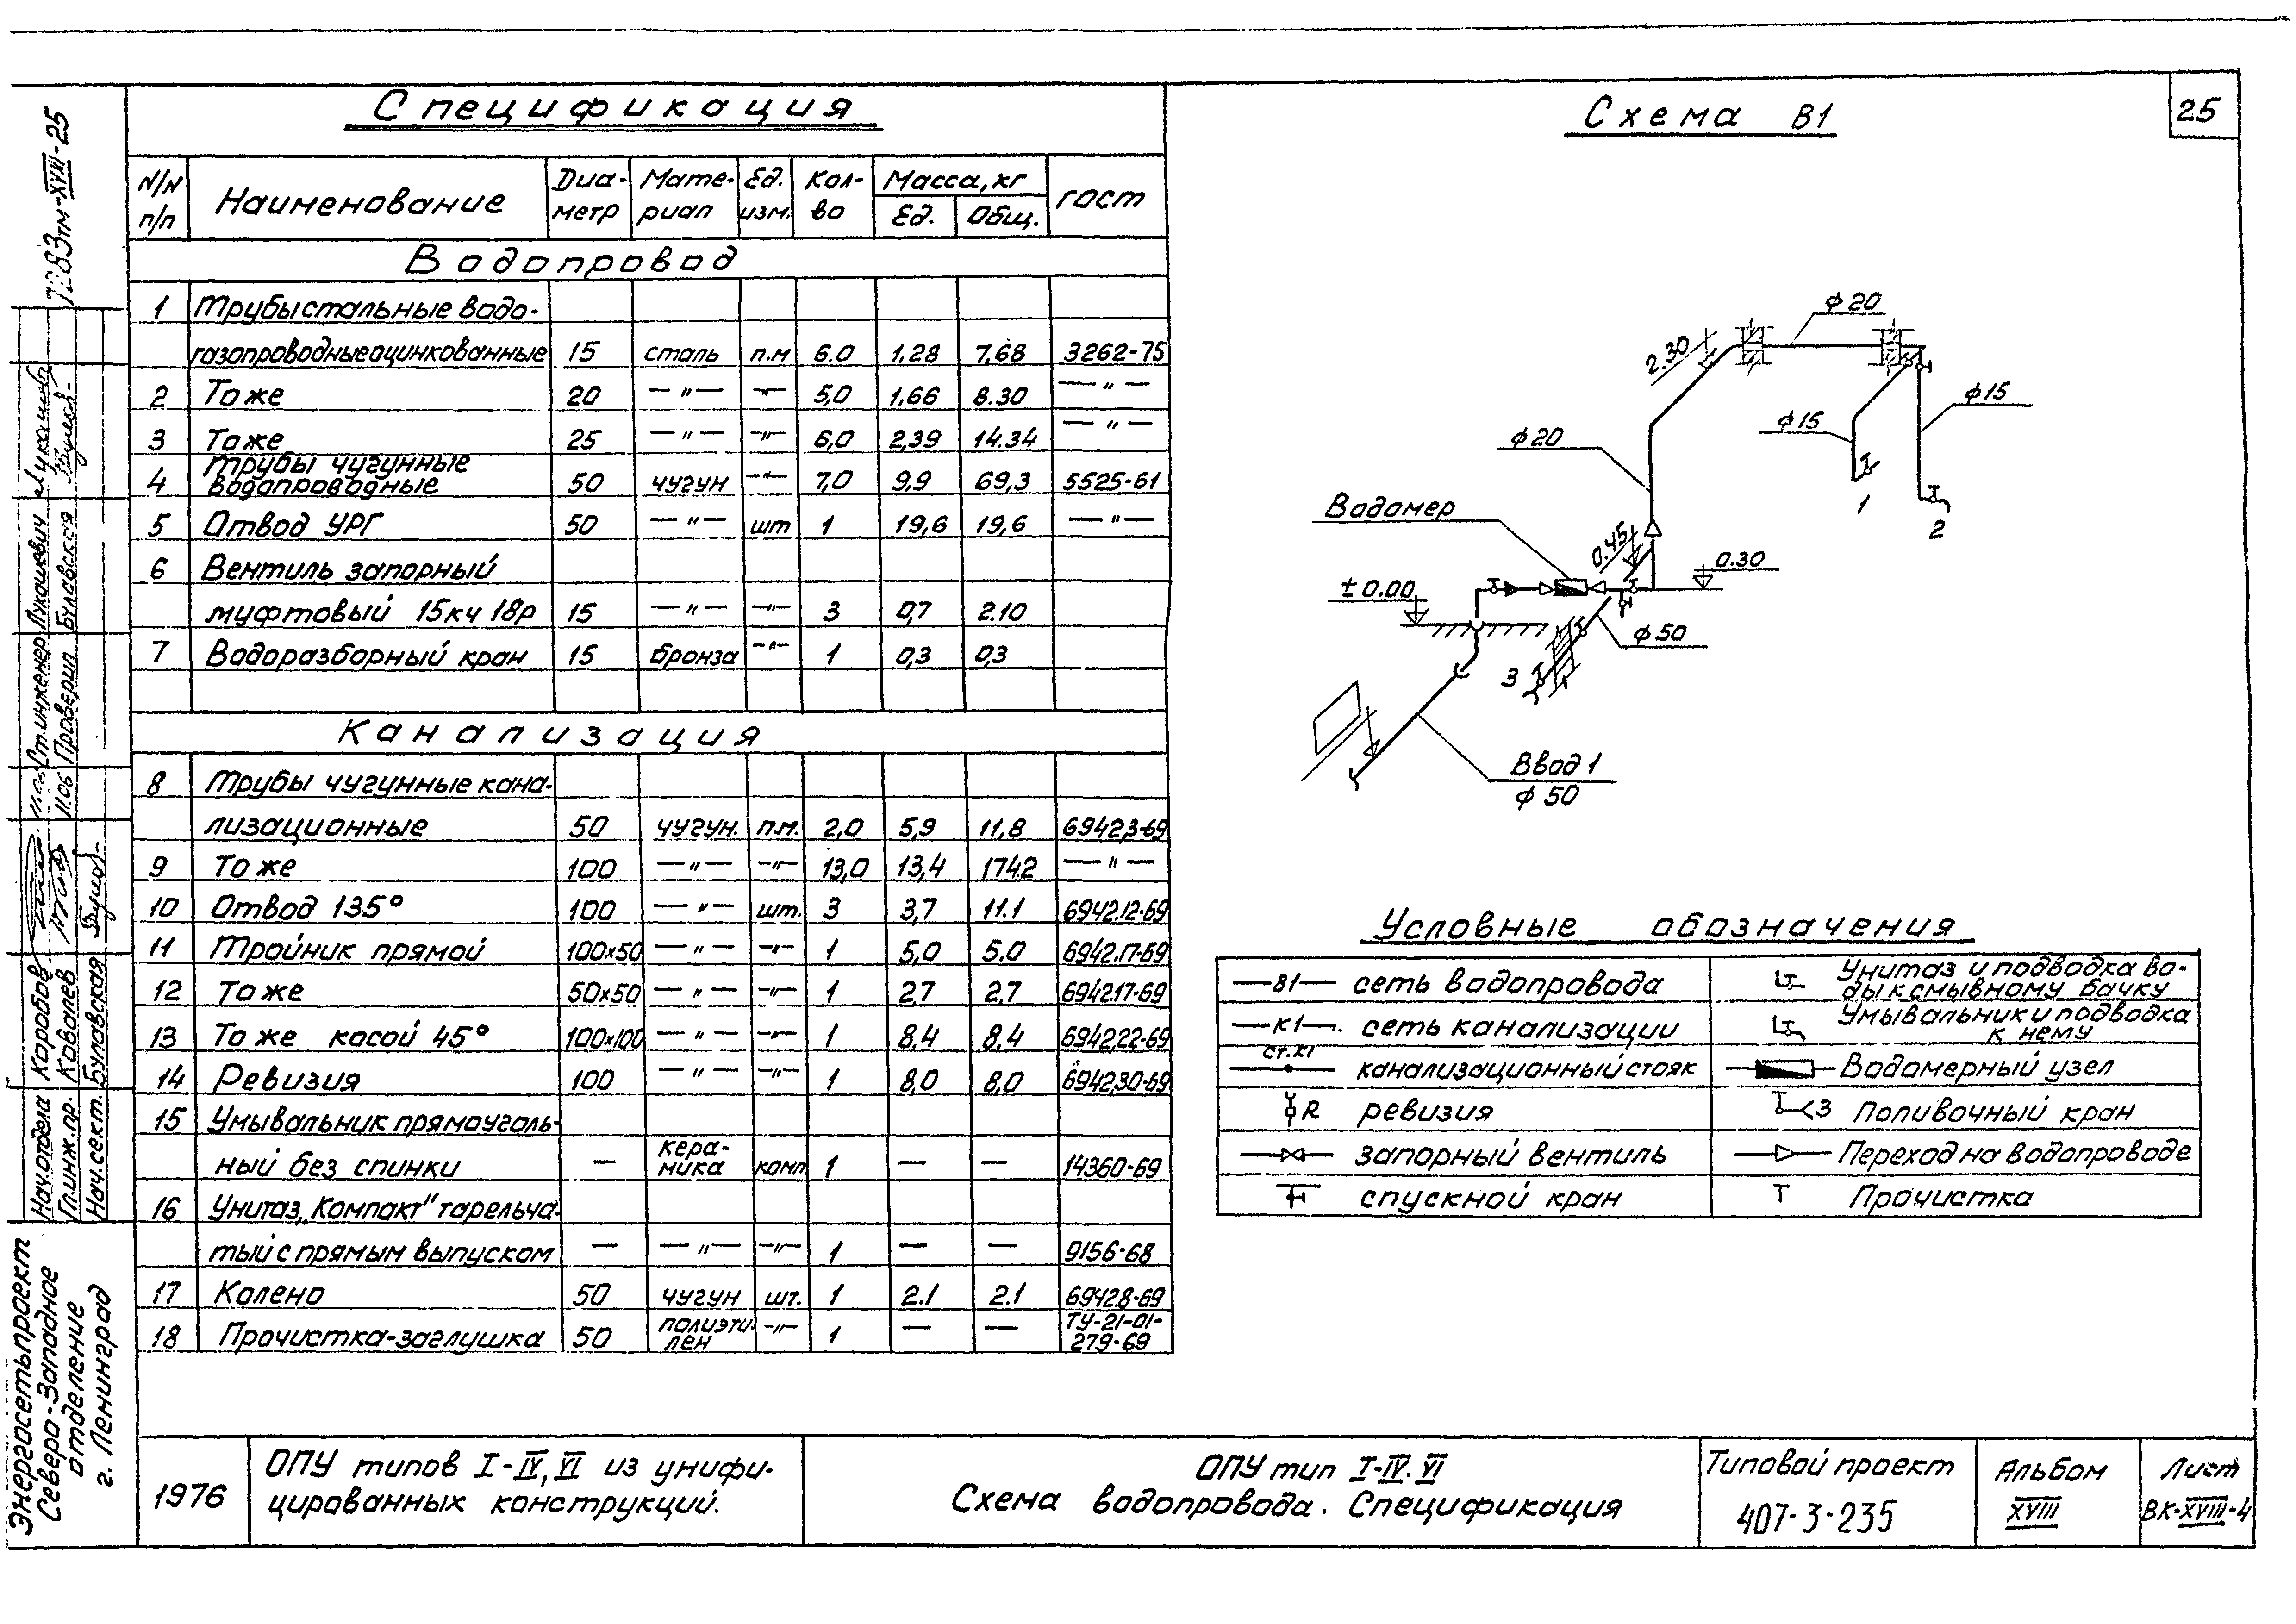 Спецификация
N/N п/п Наименование Диаметр Материал Ед. изм. Кол-во Масса, кг Ед. Общ. ГОСТ
Водопровод
1 Трубы стальные водо-
газопроводные оцинкованные 15 сталь п.м 6.0 1,28 7,68 3262-75
2 То же 20 —"— —"— 5,0 1,66 8.30 —"—
3 То же 25 —"— —"— 6,0 2,39 14.34 —"—
4 Трубы чугунные водопроводные 50 чугун —"— 7,0 9,9 69,3 5525-61
5 Отвод УРГ 50 —"— шт 1 19,6 19,6 —"—
6 Вентиль запорный
муфтовый 15кч 18р 15 —"— —"— 3 0,7 2.10
7 Водоразборный кран 15 бронза —"— 1 0,3 0,3
Канализация
8 Трубы чугунные кана-
лизационные 50 чугун. п.м. 2,0 5,9 11,8 6942,3-69
9 То же 100 —"— —"— 13,0 13,4 174.2 —"—
10 Отвод 135° 100 —"— шт. 3 3,7 11.1 6942.12-69
11 Тройник прямой 100х50 —"— —"— 1 5,0 5.0 6942.17-69
12 То же 50х50 —"— —"— 1 2,7 2,7 6942.17-69
13 То же косой 45° 100х100 —"— —"— 1 8.4 8,4 6942,22-69
14 Ревизия 100 —"— —"— 1 8,0 8,0 6942,30-69
15 Умывальник прямоуголь-
ный без спинки — керамика комп. 1 — — 14360-69
16 Унитаз „Компакт" тарельча-
тый с прямым выпуском — —"— —"— 1 — — 9156-68
17 Колено 50 чугун шт. 1 2.1 2.1 6942.8-69
18 Прочистка-заглушка 50 полиэтилен —"— 1 — — ТУ-21-01-279-69
Схема В1
25
ϕ20
2.30
ϕ15
ϕ15
ϕ20
Водомер
0.45
0.30
±0.00
ϕ50
1
2
3
Ввод 1
ϕ50
Условные обозначения
—В1— сеть водопровода
Унитаз и подводка во-
ды к смывному бачку
—К1— сеть канализации
Умывальник и подводка
к нему
ст.К1 канализационный стояк
Водомерный узел
R ревизия
3 Поливочный кран
запорный вентиль
Переход на водопроводе
спускной кран
Прочистка
1976
ОПУ типов I-IV, VI из унифи-
цированных конструкций.
ОПУ тип I-IV. VI
Схема водопровода. Спецификация
Типовой проект
407-3-235
Альбом
XVIII
Лист
ВК-XVIII-4
тм-XVIII-25
Ст.инженер Лукашевич
Проверил Булавская
11.06
Нач.отдела Коробов
Гл.инж.пр. Ковалев
Нач.сект. Булавская
Энергосетьпроект
Северо-Западное
отделение
г. Ленинград